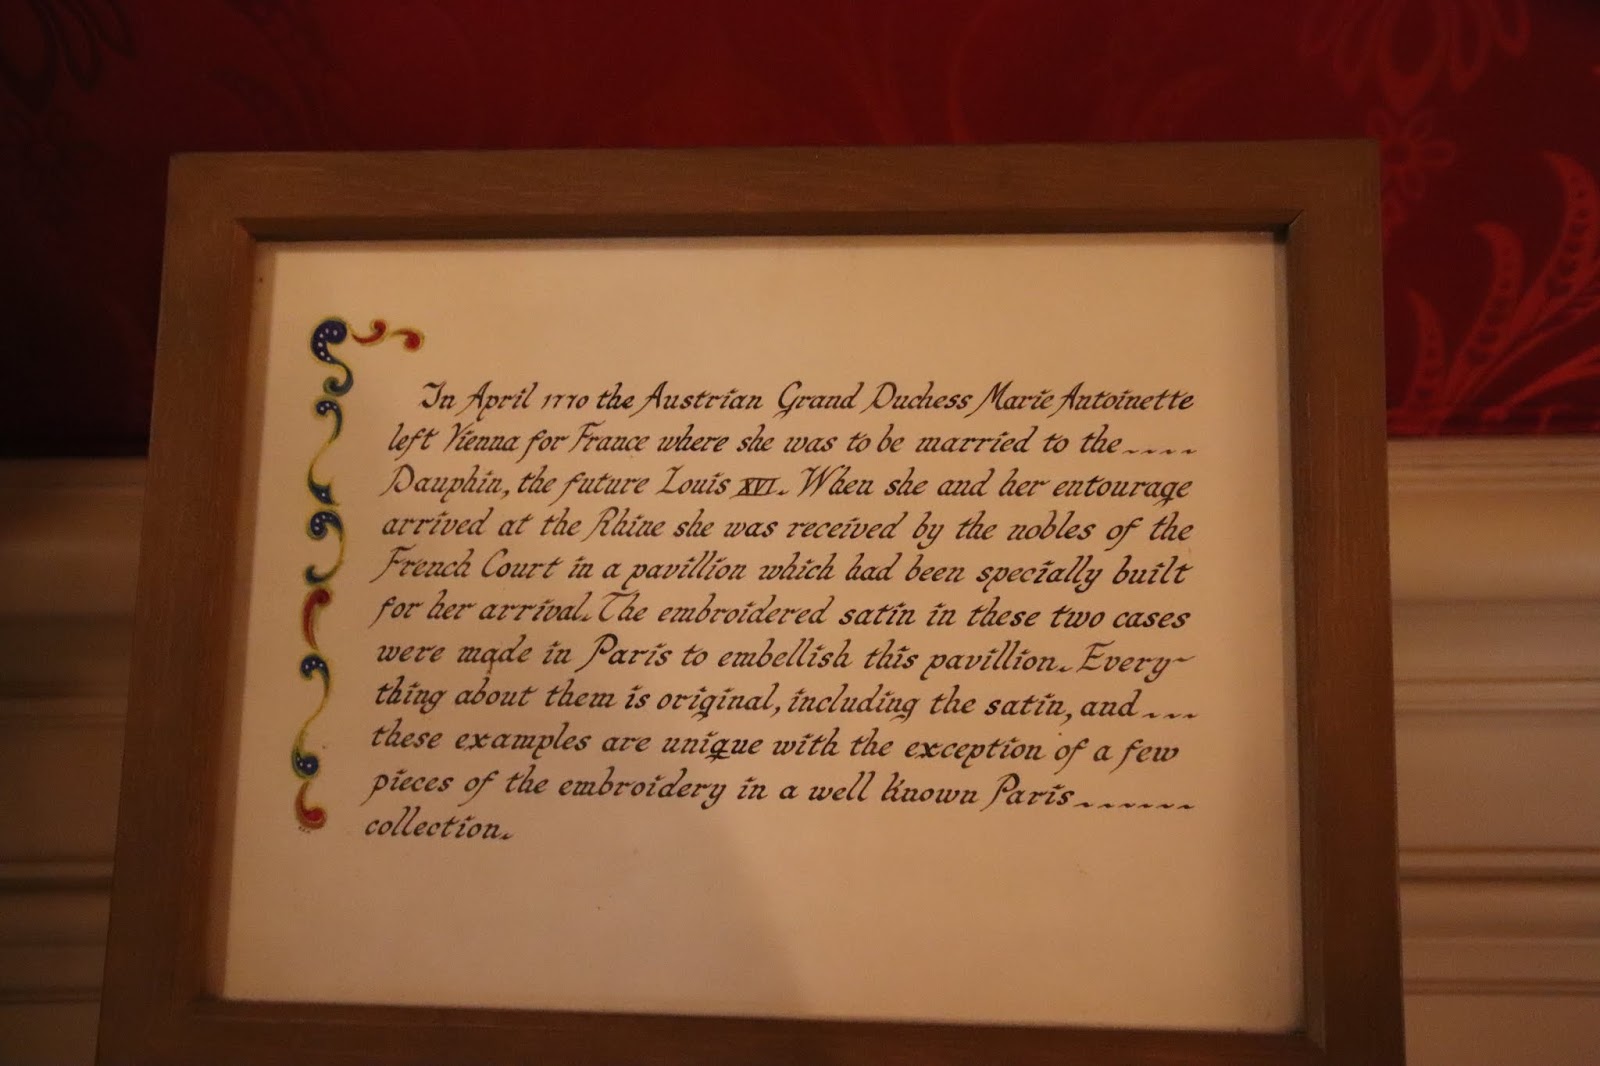 In April 1770 the Austrian Grand Duchess Marie Antoinette
left Vienna for France where she was to be married to the....
Dauphin, the future Louis XVI. When she and her entourage
arrived at the Rhine she was received by the nobles of the
French Court in a pavillion which had been specially built
for her arrival. The embroidered satin in these two cases
were made in Paris to embellish this pavillion. Every-
thing about them is original, including the satin, and...
these examples are unique with the exception of a few
pieces of the embroidery in a well known Paris.......
collection.